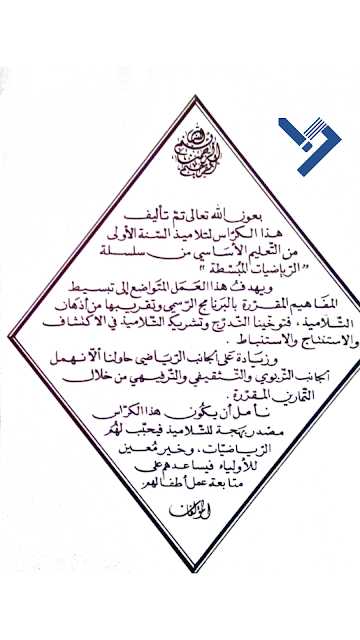 بعون الله تعالى تمّ تأليف
هذا الكرّاس لتلاميذ السّنة الأولى
من التّعليم الأساسي من سلسلة
"الرّياضيات المبسّطة"
ويهدف هذا العمل المتواضع إلى تبسيط
المفاهيم المقرّرة بالبرنامج الرّسمي وتقريبها من أذهان
التّلاميذ، فتوخّينا التدرّج وتشريك التّلاميذ في الاكتشاف
والاستنتاج والاستنباط.
وزيادة على الجانب الرّياضي حاولنا ألاّ نهمل
الجانب التّربوي والتّثقيفي والتّرفيهي من خلال
التّمارين المقرّرة.
نأمل أن يكون هذا الكرّاس
مصدر بهجة للتّلاميذ فيحبّب لهم
الرّياضيّات، وخير معين
للأولياء فيساعدهم على
متابعة عمل أطفالهم.
المؤلّفان